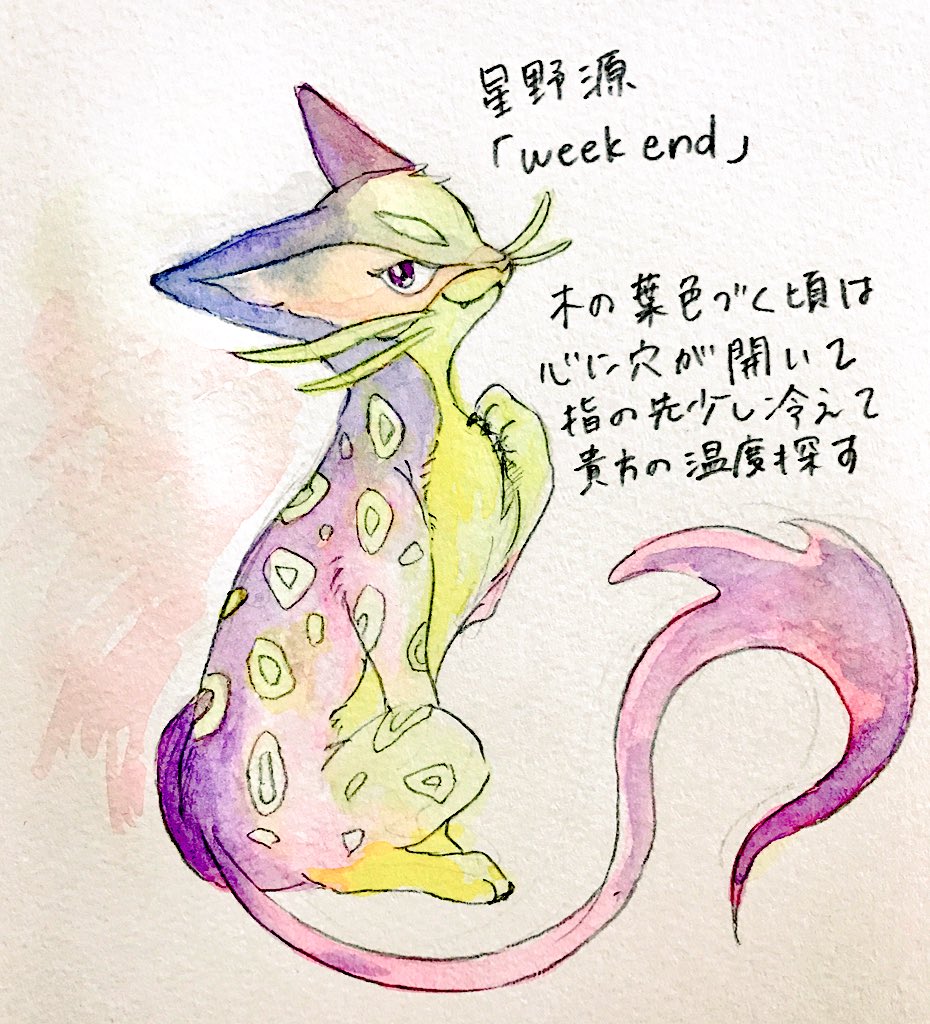 星野源
「week end」
木の葉色づく頃は
心に穴が開いて
指の先少し冷えて
貴方の温度探す